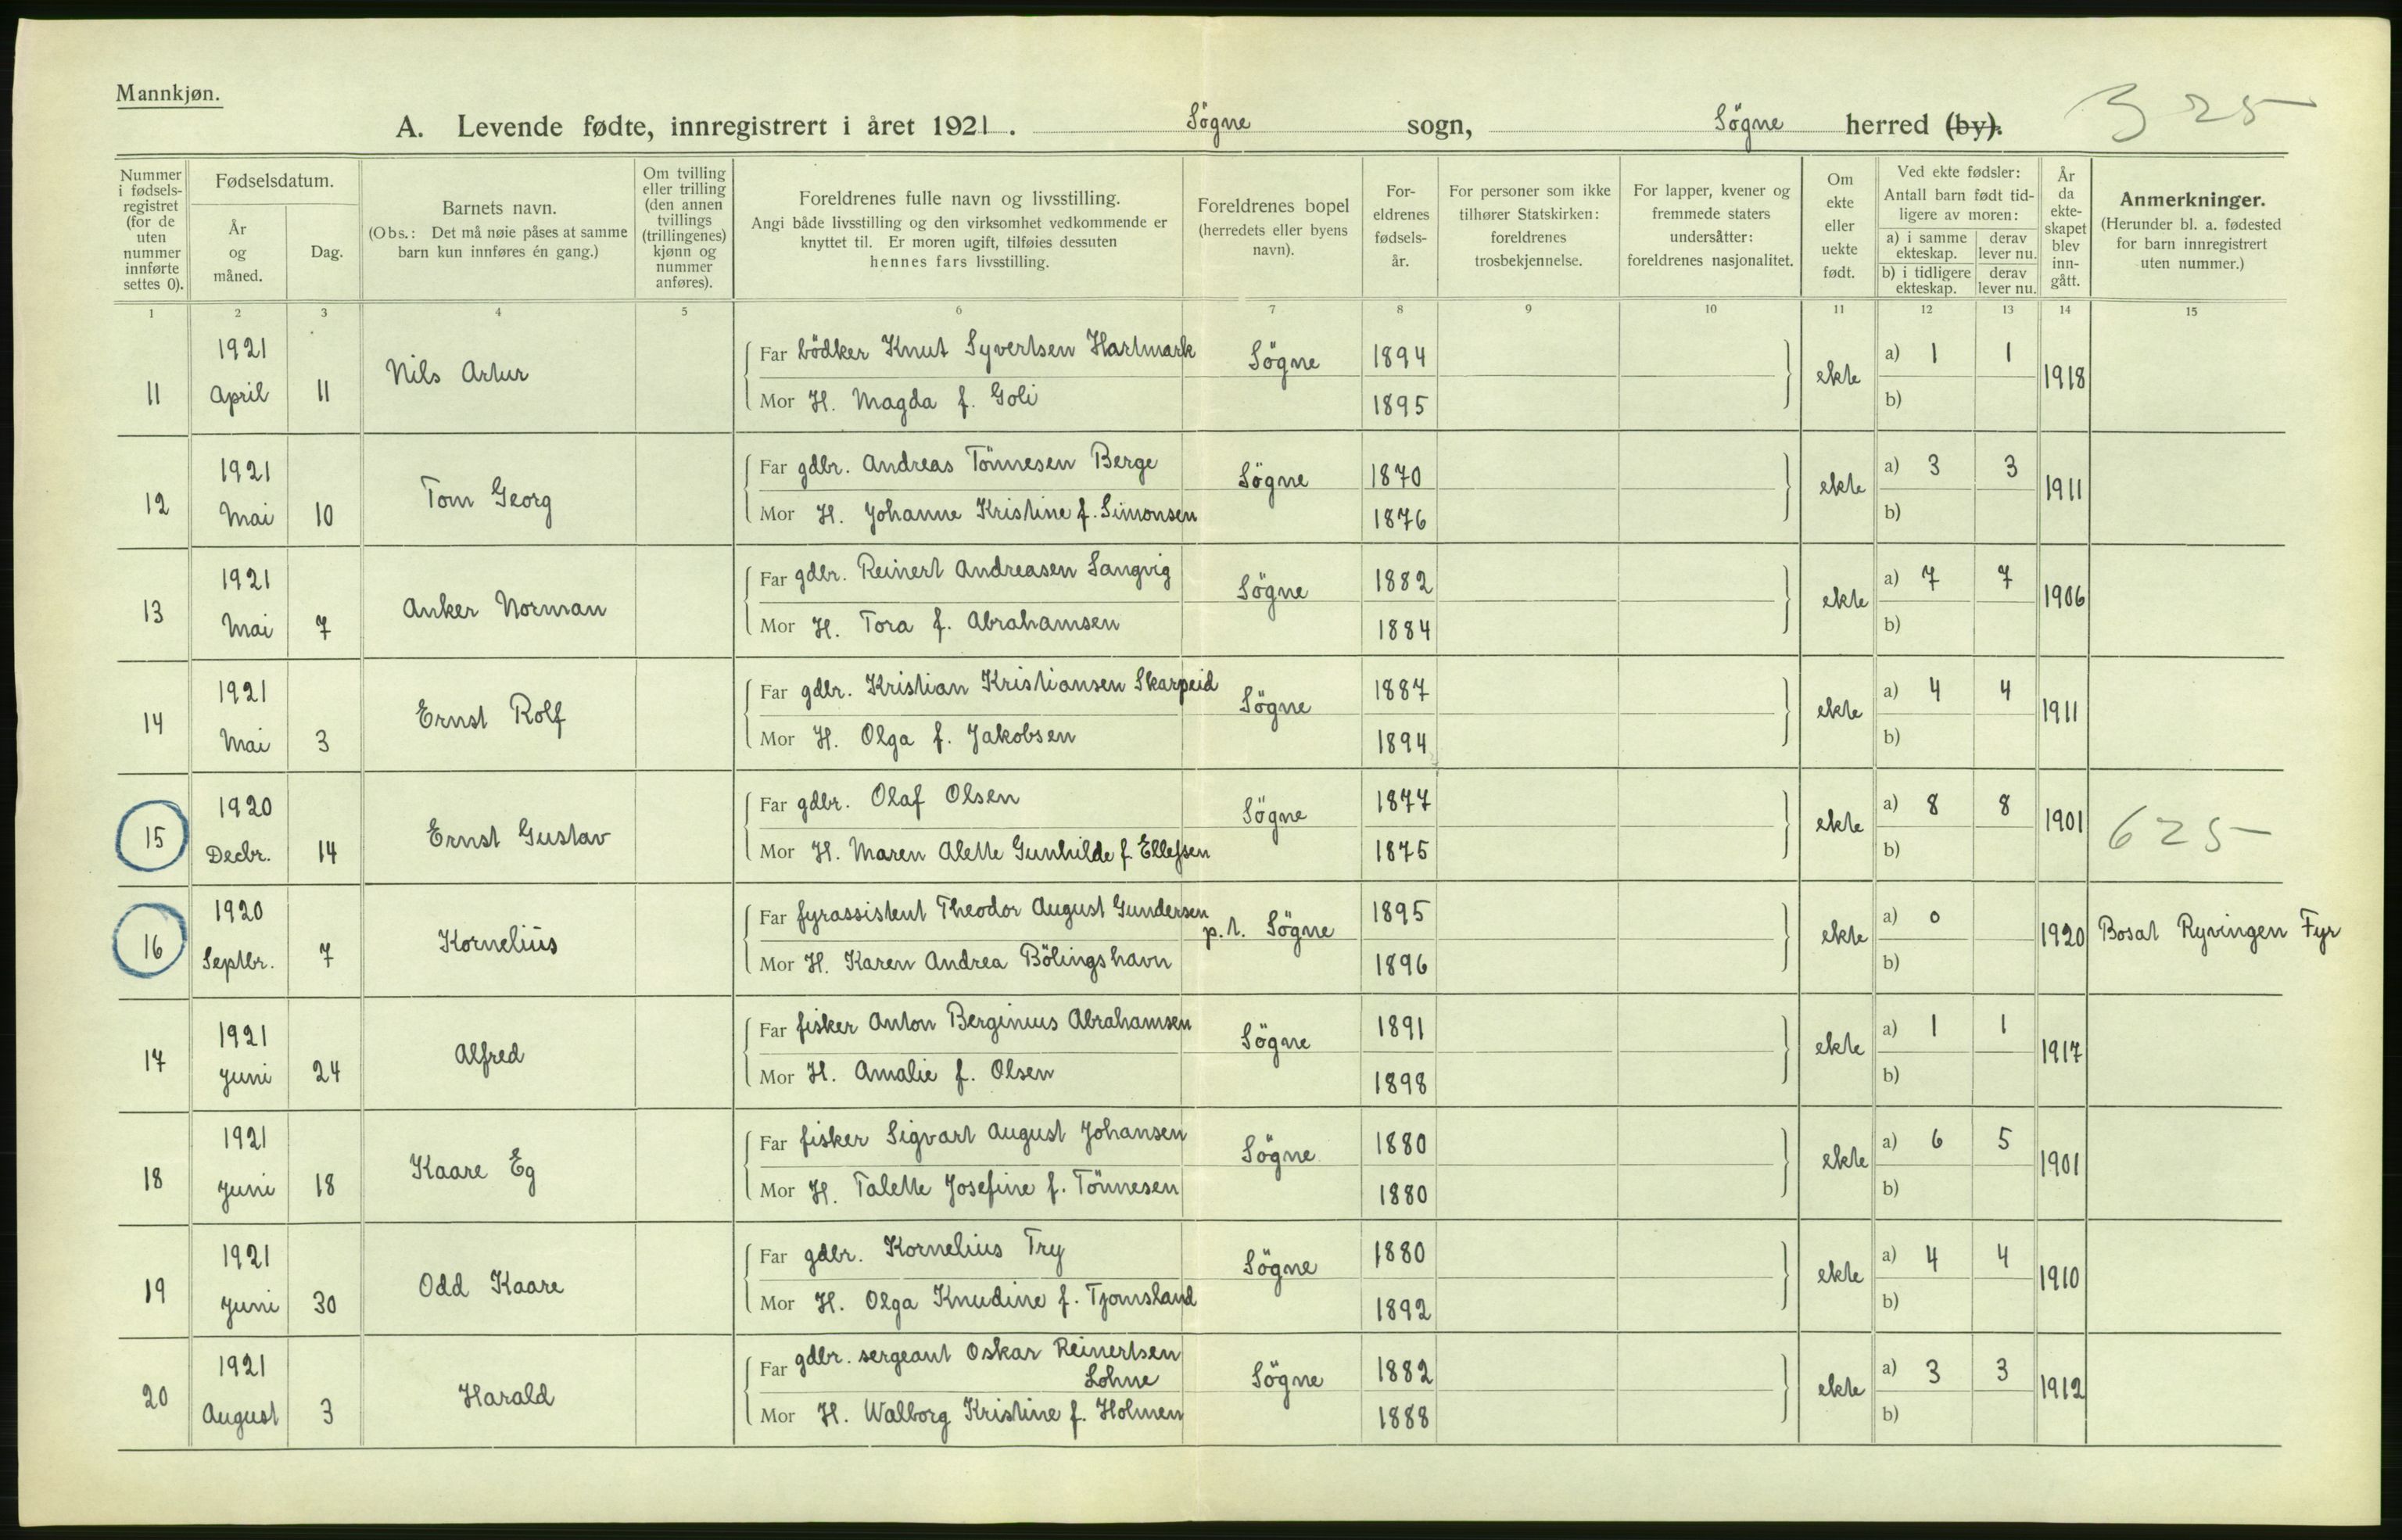 Mannkjøn.
A. Levende fødte, innregistrert i året 1921. Søgne sogn, Søgne herred (by).
3 25
Nummer i fødsels-registret (for de uten nummer innførte settes 0).
Fødselsdatum.
År og måned.
Dag.
Barnets navn.
(Obs.: Det må nøie påses at samme barn kun innføres én gang.)
Om tvilling eller trilling (den annen tvillings (trillingenes) kjønn og nummer anføres).
Foreldrenes fulle navn og livsstilling.
Angi både livsstilling og den virksomhet vedkommende er knyttet til. Er moren ugift, tilføies dessuten hennes fars livsstilling.
Foreldrenes bopel (herredets eller byens navn).
For-eldrenes fødsels-år.
For personer som ikke tilhører Statskirken: foreldrenes trosbekjennelse.
For lapper, kvener og fremmede staters undersåtter: foreldrenes nasjonalitet.
Om ekte eller uekte født.
Ved ekte fødsler:
Antall barn født tid-ligere av moren:
a) i samme ekteskap. derav lever nu.
b) i tidligere ekteskap. derav lever nu.
År da ekte-skapet blev inn-gått.
Anmerkninger.
(Herunder bl. a. fødested for barn innregistrert uten nummer.)
1 2 3 4 5 6 7 8 9 10 11 12 13 14 15
11 1921 April 11 Nils Artur Far bödker Knut Syvertsen Hartmark Søgne 1894 ekte a) 1 1 1918
Mor H. Magda f. Goli 1895 b)
12 1921 Mai 10 Tom Georg Far gdbr. Andreas Tönnesen Berge Søgne 1870 ekte a) 3 3 1911
Mor H. Johanne Kristine f. Simonsen 1876 b)
13 1921 Mai 7 Anker Norman Far gdbr. Reinert Andreasen Langvig Søgne 1882 ekte a) 7 7 1906
Mor H. Tora f. Abrahamsen 1884 b)
14 1921 Mai 3 Ernst Rolf Far gdbr. Kristian Kristiansen Skarpeid Søgne 1887 ekte a) 4 4 1911
Mor H. Olga f. Jakobsen 1894 b)
15 1920 Decbr. 14 Ernst Gustav Far gdbr. Olaf Olsen Søgne 1877 ekte a) 8 8 1901 625
Mor H. Maren Alette Gunhilde f Ellefsen 1875 b)
16 1920 Septbr. 7 Kornelius Far fyrassistent Theodor August Gundersen p.t. Søgne 1895 ekte a) 0 1920 Bosat Ryvingen Fyr
Mor H. Karen Andrea Bölingshavn 1896 b)
17 1921 Juni 24 Alfred Far fisker Anton Berginius Abrahamsen Søgne 1891 ekte a) 1 1 1917
Mor H. Amalie f. Olsen 1898 b)
18 1921 Juni 18 Kaare Eg Far fisker Sigvart August Johansen Søgne 1880 ekte a) 6 5 1901
Mor H. Talette Josefine f. Tönnesen 1880 b)
19 1921 Juni 30 Odd Kaare Far gdbr. Kornelius Try Søgne 1880 ekte a) 4 4 1910
Mor H. Olga Knudine f. Tjomsland 1892 b)
20 1921 August 3 Harald Far gdbr. sergeant Oskar Reinertsen Lohne Søgne 1882 ekte a) 3 3 1912
Mor H. Walborg Kristine f. Holmen 1888 b)